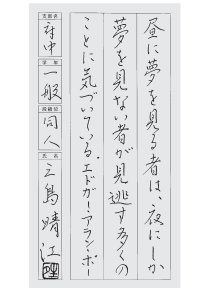 昼に夢を見る者は、夜にしか
夢を見ない者が見逃す多くの
ことに気づいている。エドガー・アラン・ポー
支部名
府中
学年
一般
段級位
同人
氏名
三島晴江